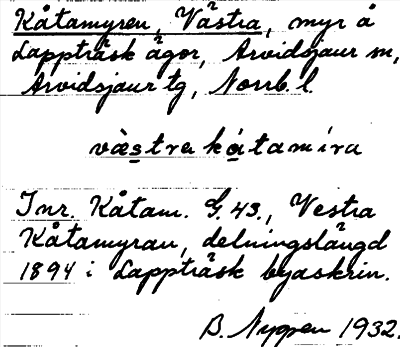 Kåtamyren, Västra, myr å
Lappträsk ägor, Arvidsjaur sn,
Arvidsjaur tg, Norrb. l.
västra kåtamíra
Inr. Kåtam. G. 43., Vestra
Kåtamyran, delningslängd
1894 i Lappträsk byaskrin.
B. Nygren 1932.